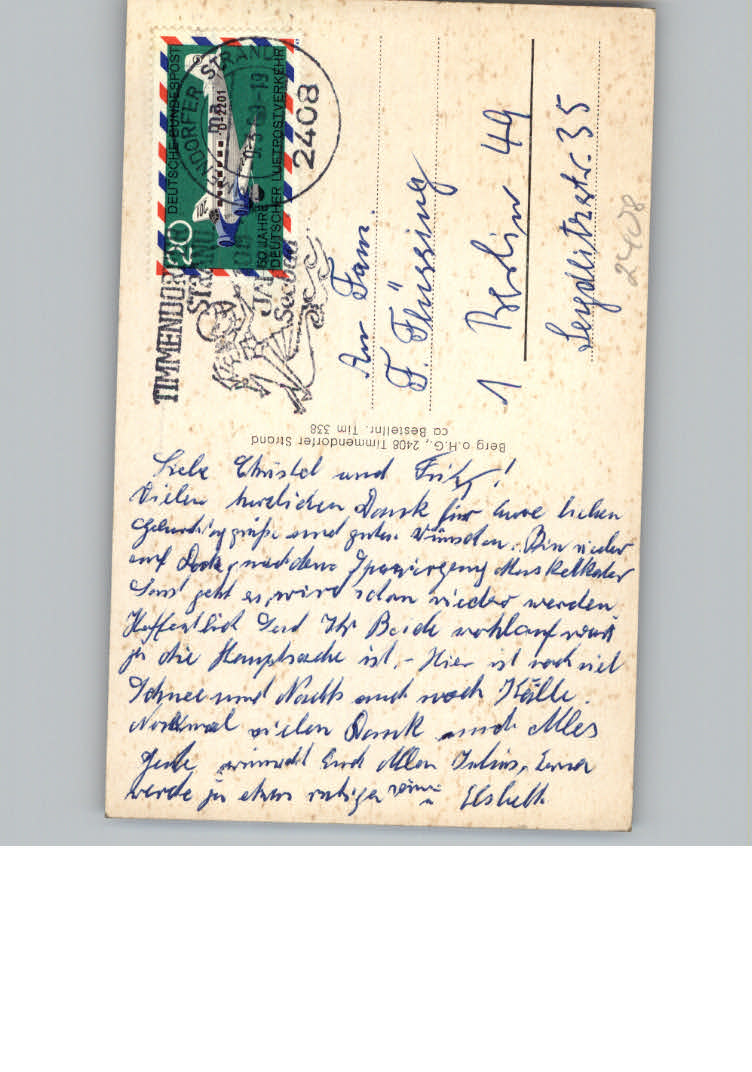 DEUTSCHE BUNDESPOST
20
50 JAHRE
DEUTSCHER LUFTPOSTVERKEHR
D-2201
NDORFER STRAND
-19
2408
TIMMENDORFER
STRAND
JAHRE
Seebad
An Fam.
F. Flüssing
1 Berlin 49
35
2408
Berg o.H.G., 2408 Timmendorfer Strand
ca Bestellnr. Tim 338
Liebe Christel und Fritz!
Vielen herzlichen Dank für Eure lieben
Geburtstaggrüße und guten Wünschen. Bin wieder
auf Deck, nach dem Spaziergang Muskelkater
Sonst geht es, wird schon wieder werden
Hoffentlich seid Ihr Beide wohlauf was
ja die Hauptsache ist. - Hier ist noch viel
Schnee und Nachts auch noch Kälte.
Nochmal vielen Dank und Alles
Gute wünscht Euch Allen Julius, Erna
werde ja etwas ruhiger Elsbeth